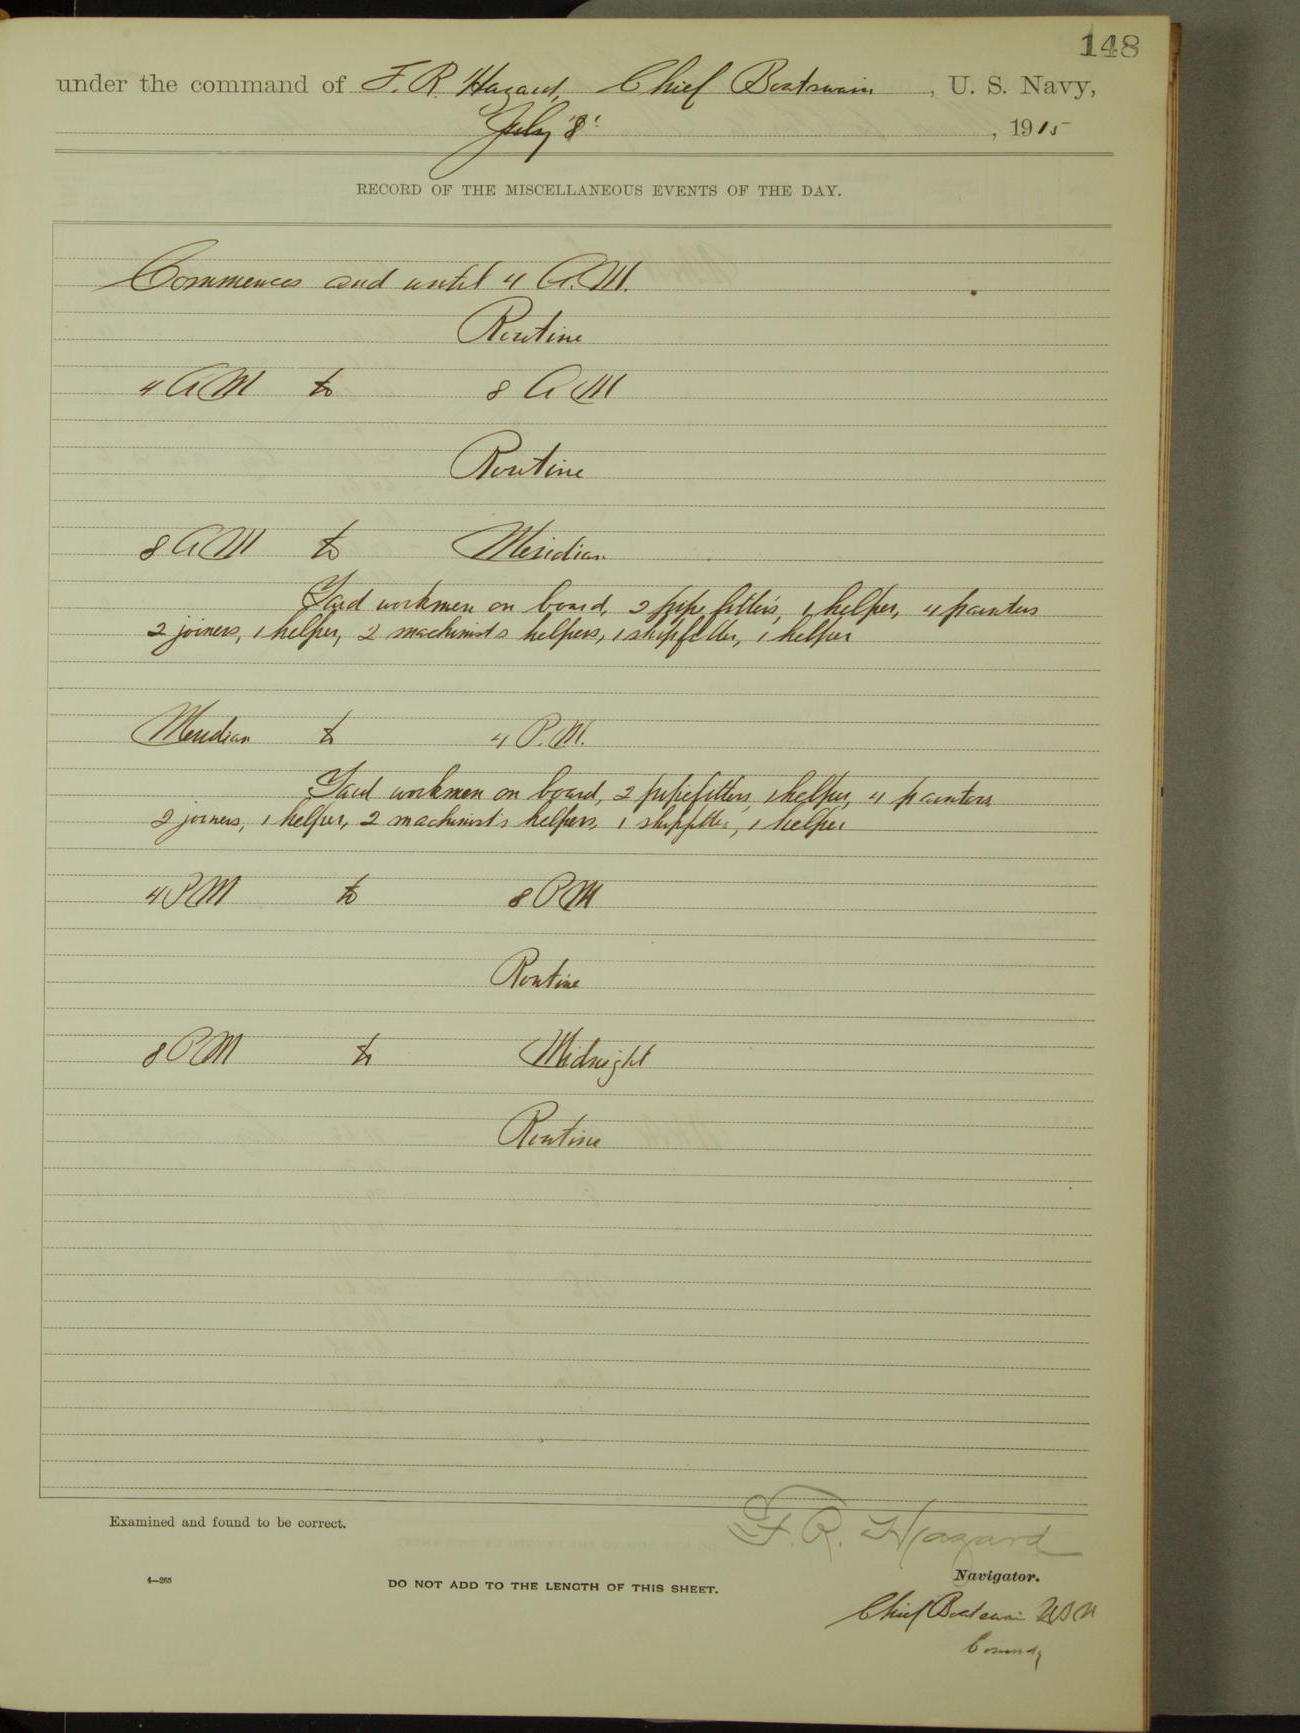 148
under the command of F. R. Hazard, Chief Boatswain, U. S. Navy,
July 8, 1915
RECORD OF THE MISCELLANEOUS EVENTS OF THE DAY.
Commences and until 4 A.M.
Routine
4 AM to 8 AM
Routine
8 AM to Meridian
Yard workmen on board, 2 pipe fitters, 1 helper, 4 painters
2 joiners, 1 helper, 2 machinists helpers, 1 shipfitter, 1 helper
Meridian to 4 P.M.
Yard workmen on board, 2 pipefitters, 1 helper, 4 painters
2 joiners, 1 helper, 2 machinist's helpers, 1 shipfitter, 1 helper
4 PM to 8 PM
Routine
8 PM to Midnight
Routine
Examined and found to be correct.
F. R. Hazard
Navigator.
4—265
DO NOT ADD TO THE LENGTH OF THIS SHEET.
Chief Boatswain USN
Comdg